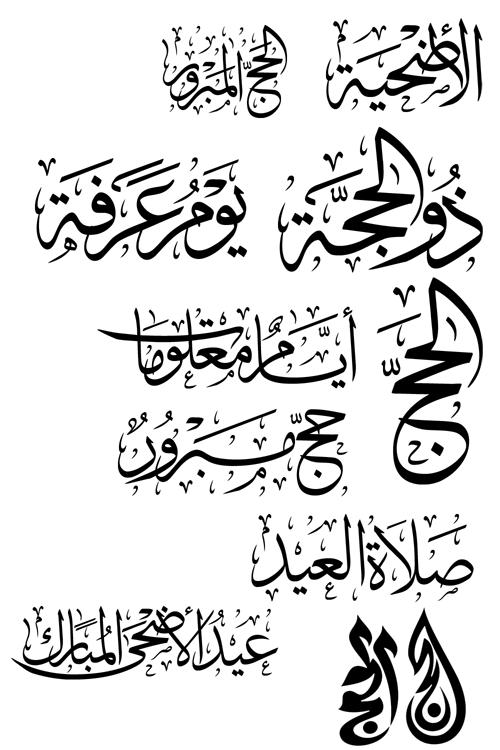 الأضحية
الحج المبرور
ذُو الحجَّة
يَوْمُ عَرَفَة
الحَجّ
أيَّامٌ مَعْلُومَات
حَجّ مَبْرُورٌ
صَلَاةُ العِيد
عِيدُ الأضْحَى المُبَارَك
الحج